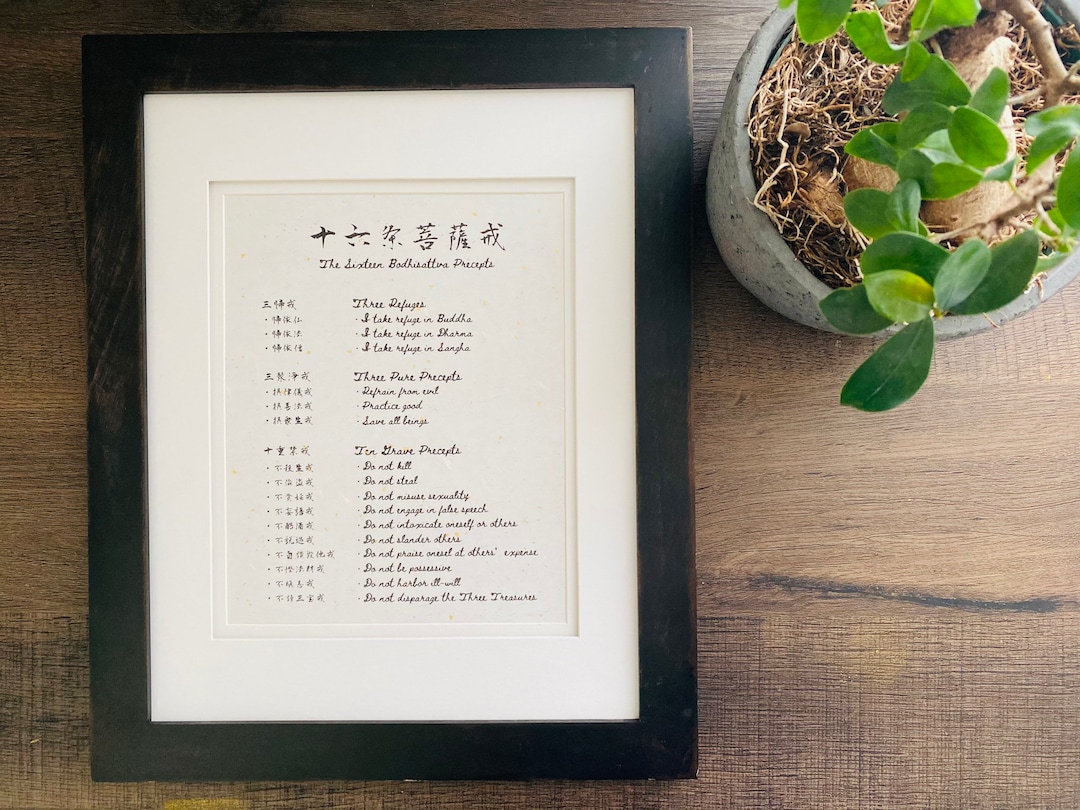 十六条菩薩戒
The Sixteen Bodhisattva Precepts
三帰戒 Three Refuges
・帰依仏 · I take refuge in Buddha
・帰依法 · I take refuge in Dharma
・帰依僧 · I take refuge in Sangha
三聚浄戒 Three Pure Precepts
・摂律儀戒 · Refrain from evil
・摂善法戒 · Practice good
・摂衆生戒 · Save all beings
十重禁戒 Ten Grave Precepts
・不殺生戒 · Do not kill
・不偸盗戒 · Do not steal
・不貪婬戒 · Do not misuse sexuality
・不妄語戒 · Do not engage in false speech
・不酤酒戒 · Do not intoxicate oneself or others
・不説過戒 · Do not slander others
・不自讃毀他戒 · Do not praise onesel at others' expense
・不慳法財戒 · Do not be possessive
・不瞋恚戒 · Do not harbor ill-will
・不謗三宝戒 · Do not disparage the Three Treasures